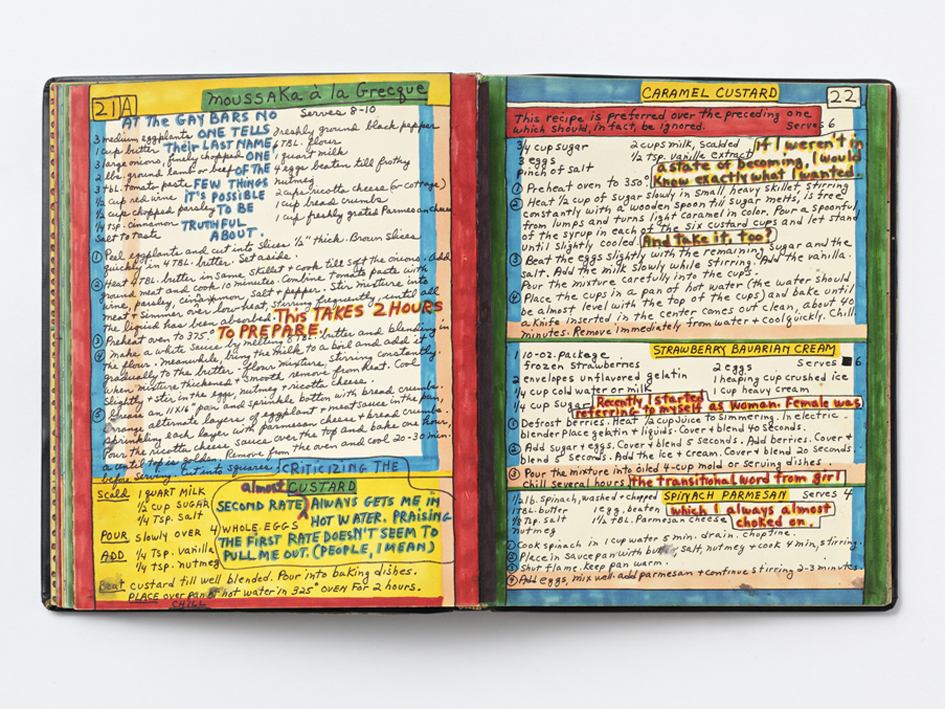 21/A
MOUSSAKA à la Grecque
Serves 8-10
AT THE GAY BARS NO
ONE TELLS
Their LAST NAME,
ONE
OF THE
FEW THINGS
IT'S POSSIBLE
TO BE
TRUTHFUL
ABOUT.
3 medium eggplants
1 cup butter
3 large onions, finely chopped
2 lbs. ground lamb or beef
3 tbl. tomato paste
1/2 cup red wine
1/2 cup chopped parsley
1/4 tsp. cinnamon
Salt to taste
freshly ground black pepper
TBL. flour
1 quart milk
4 eggs beaten till frothy
nutmeg
2 cups ricotta cheese (or cottage)
1 cup bread crumbs
1 cup freshly grated Parmesan cheese
① Peel eggplants and cut into slices 1/2" thick. Brown slices
quickly in 4 TBL. butter. Set aside.
② Heat 4 TBL. butter in same skillet + cook till soft the onions. Add
ground meat and cook 10 minutes. Combine tomato paste with
wine, parsley, cinnamon, salt + pepper. Stir mixture into
meat + simmer over low heat, stirring frequently, until all
the liquid has been absorbed.
THIS TAKES 2 HOURS
TO PREPARE.
③ Preheat oven to 375°.
④ Make a white sauce by melting 8 TBL. butter and blending in
the flour. Meanwhile, bring the milk to a boil and add it
gradually to the butter-flour mixture, stirring constantly.
When mixture thickened + smooth, remove from heat. Cool
slightly + stir in the eggs, nutmeg + ricotta cheese.
⑤ Grease an 11x16" pan and sprinkle bottom with bread crumbs.
Arrange alternate layers of eggplant + meat sauce in the pan,
sprinkling each layer with parmesan cheese + bread crumbs.
Pour the ricotta cheese sauce over the top and bake one hour,
until top is golden. Remove from the oven and cool 20-30 min.
before serving. Cut into squares.
CRITICIZING THE
almost
SECOND RATE ALWAYS GETS ME IN
HOT WATER. PRAISING
THE FIRST RATE DOESN'T SEEM TO
PULL ME OUT. (PEOPLE, I MEAN)
CUSTARD
Scald 1 QUART MILK
1/2 CUP SUGAR
1/4 Tsp. Salt
POUR slowly over 4 WHOLE EGGS
ADD 1/4 Tsp. vanilla
1/4 Tsp. nutmeg
Beat custard till well blended. Pour into baking dishes.
PLACE over pan of hot water in 325° OVEN FOR 2 hours.
CHILL
CARAMEL CUSTARD
22
This recipe is preferred over the preceding one
which should, in fact, be ignored.
Serves 6
3/4 cup sugar
3 eggs
pinch of salt
2 cups milk, scalded
1/2 tsp. vanilla extract
If I weren't in
a state of becoming, I would
Know exactly what I wanted.
① Preheat oven to 350°
② Heat 1/2 cup of sugar slowly in small, heavy skillet stirring
constantly with a wooden spoon till sugar melts, is free
from lumps and turns light caramel in color. Pour a spoonful
of the syrup in each of the six custard cups and let stand
until slightly cooled.
And take it, too?
③ Beat the eggs slightly with the remaining sugar and the
salt. Add the milk slowly while stirring. Add the vanilla.
Pour the mixture carefully into the cups.
④ Place the cups in a pan of hot water (the water should
be almost level with the top of the cups) and bake until
a knife inserted in the center comes out clean, about 40
minutes. Remove immediately from water + cool quickly. Chill
STRAWBERRY BAVARIAN CREAM
Serves 6
1 10-oz. package
frozen strawberries
2 envelopes unflavored gelatin
1/4 cup cold water or milk
1/4 cup sugar
2 eggs
1 heaping cup crushed ice
1 cup heavy cream
Recently I started
referring to myself as woman. Female was
① Defrost berries. Heat 1/2 cup juice to simmering. In electric
blender place gelatin + liquids. Cover + blend 40 seconds.
② Add sugar + eggs. Cover + blend 5 seconds. Add berries. Cover +
blend 5 seconds. Add the ice + cream. Cover + blend 20 seconds.
③ Pour the mixture into oiled 4-cup mold or serving dishes.
Chill several hours
the transitional word from girl
SPINACH PARMESAN
Serves 4
1/2 lb. Spinach, washed + chopped
1 TBL. butter
1/8 Tsp. salt
nutmeg
1 egg, beaten
1 1/2 TBL. Parmesan cheese
which I always almost
choked on.
① Cook spinach in 1 cup water 5 min. drain. chop fine.
② Place in saucepan with butter, salt, nutmeg + cook 4 min, stirring.
③ Shut flame. Keep pan warm.
④ Add eggs, mix well. add parmesan + continue stirring 2-3 minutes